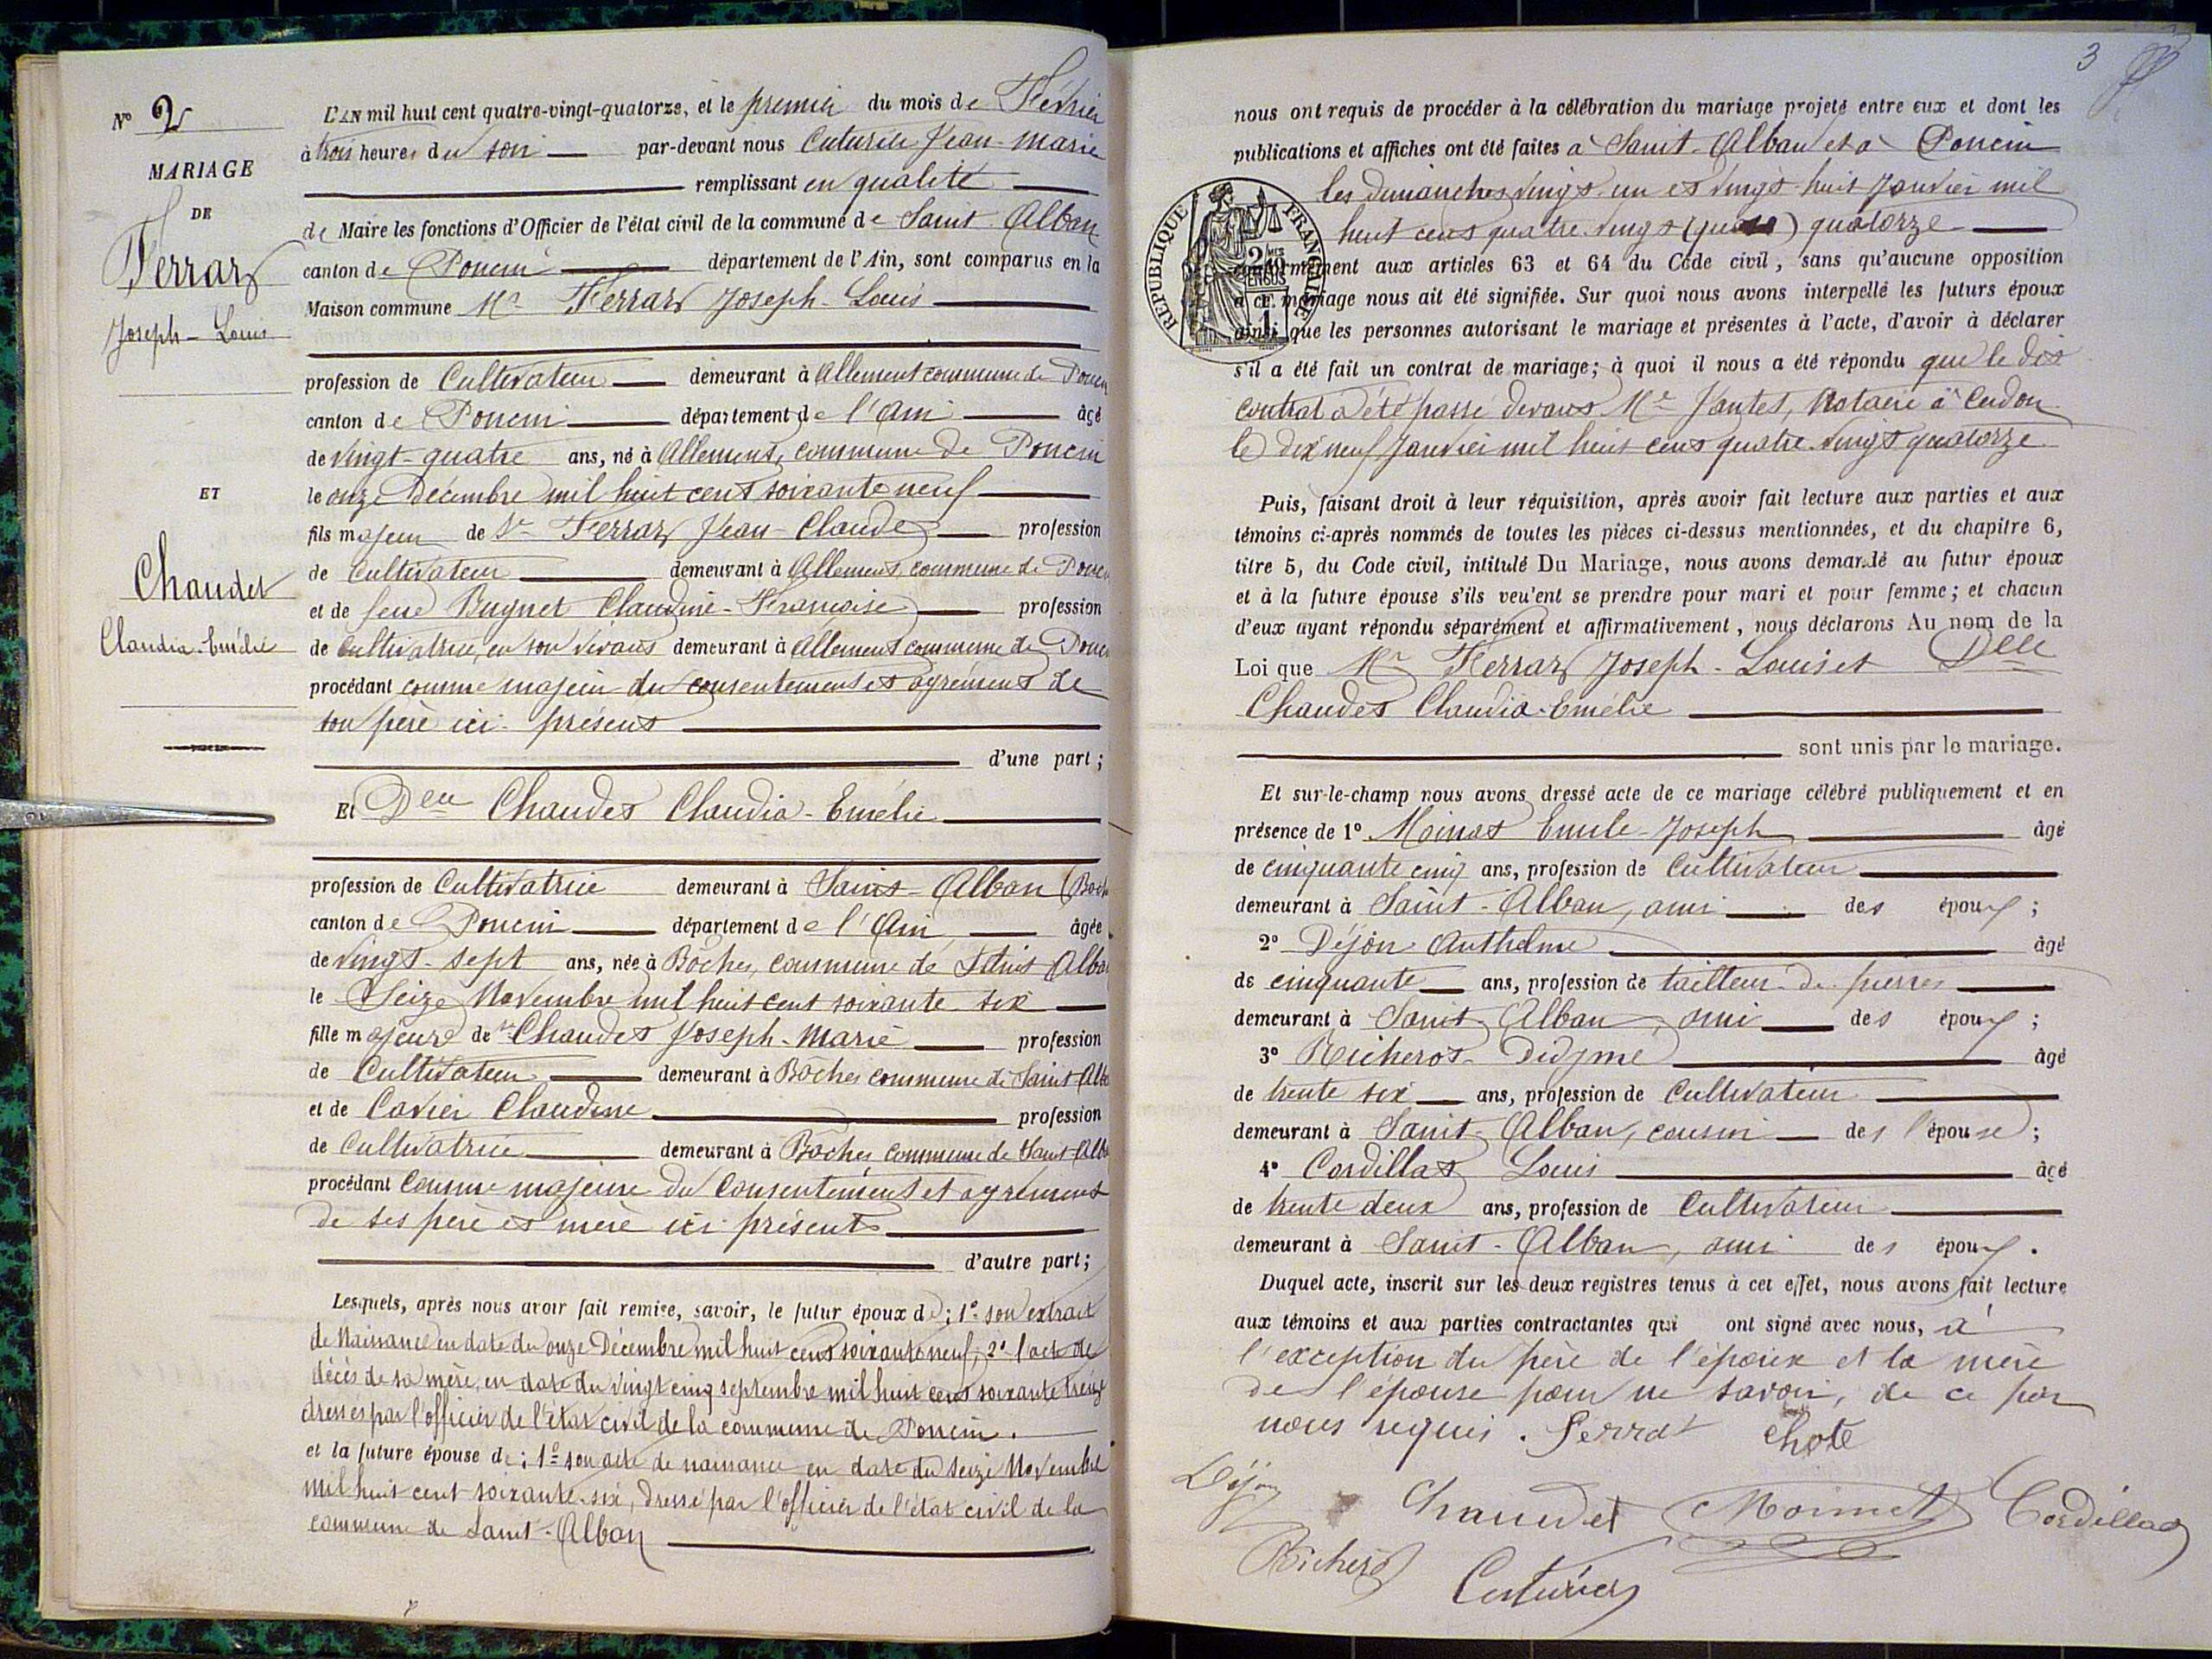 N° 2
MARIAGE
DE
Ferrar
Joseph-Louis
ET
Chaudet
Claudia-Emélie
L'AN mil huit cent quatre-vingt-quatorze, et le premier du mois de Février
à trois heures du soir par-devant nous Cuturier Jean-Marie
remplissant en qualité
de Maire les fonctions d'Officier de l'état civil de la commune de Saint-Alban
canton de Poncin département de l'Ain, sont comparus en la
Maison commune Mr Ferrar Joseph-Louis
profession de Cultivateur demeurant à Allement commune de Poncin
canton de Poncin département de l'Ain âgé
de vingt-quatre ans, né à Allement, commune de Poncin
le onze Décembre mil huit cent soixante neuf
fils majeur de Sr Ferrar Jean-Claude profession
de Cultivateur demeurant à Allement, commune de Ponc
et de feue Bugnet Claudine-Françoise profession
de Cultivatrice, en son vivant demeurant à Allement commune de Ponc
procédant comme majeur du consentement et agrément de
son père ici présent
d'une part ;
Et Delle Chaudet Claudia-Emélie
profession de Cultivatrice demeurant à Saint-Alban (Boch
canton de Poncin département de l'Ain âgée
de vingt-sept ans, née à Bôches, commune de Saint-Alba
le Seize Novembre mil huit cent soixante six
fille majeure de Sr Chaudet Joseph-Marie profession
de Cultivateur demeurant à Bôches commune de Saint-Alb
et de Cavier Claudine profession
de Cultivatrice demeurant à Bôches commune de Saint-Alb
procédant comme majeure du consentement et agrément
de ses père et mère ici présents
d'autre part;
Lesquels, après nous avoir fait remise, savoir, le futur époux de ; 1° son extrait
de Naissance en date du onze Décembre mil huit cent soixante neuf; 2° l'acte de
décès de sa mère, en date du vingt cinq septembre mil huit cent soixante treize
dressés par l'officier de l'état civil de la commune de Poncin.
et la future épouse de ; 1° son acte de naissance en date du seize Novembre
mil huit cent soixante-six, dressé par l'officier de l'état civil de la
commune de Saint-Alban
3
nous ont requis de procéder à la célébration du mariage projeté entre eux et dont les
publications et affiches ont été faites à Saint-Alban et à Poncin
les dimanches vingt-un et vingt-huit Janvier mil
huit cent quatre-vingt quatorze
REPUBLIQUE FRANÇAISE
conformément aux articles 63 et 64 du Code civil, sans qu'aucune opposition
à ce mariage nous ait été signifiée. Sur quoi nous avons interpellé les futurs époux
ainsi que les personnes autorisant le mariage et présentes à l'acte, d'avoir à déclarer
s'il a été fait un contrat de mariage; à quoi il nous a été répondu que le dit
contrat a été passé devant Me Jantet, Notaire à Cerdon
le dix neuf Janvier mil huit cent quatre-vingt quatorze
Puis, faisant droit à leur réquisition, après avoir fait lecture aux parties et aux
témoins ci-après nommés de toutes les pièces ci-dessus mentionnées, et du chapitre 6,
titre 5, du Code civil, intitulé Du Mariage, nous avons demandé au futur époux
et à la future épouse s'ils veulent se prendre pour mari et pour femme ; et chacun
d'eux ayant répondu séparément et affirmativement, nous déclarons Au nom de la
Loi que Mr Ferrar Joseph-Louis et Delle
Chaudet Claudia-Emélie
sont unis par le mariage.
Et sur-le-champ nous avons dressé acte de ce mariage célébré publiquement et en
présence de 1° Moinat Emile-Joseph âgé
de cinquante cinq ans, profession de Cultivateur
demeurant à Saint-Alban, ami des époux ;
2° Déjon Anthelme âgé
de cinquante ans, profession de tailleur de pierres
demeurant à Saint-Alban, ami des époux ;
3° Richerot Didyme âgé
de trente six ans, profession de Cultivateur
demeurant à Saint-Alban, cousin de l'épouse ;
4° Cordillat Louis âgé
de trente deux ans, profession de Cultivateur
demeurant à Saint-Alban, ami des époux .
Duquel acte, inscrit sur les deux registres tenus à cet effet, nous avons fait lecture
aux témoins et aux parties contractantes qui ont signé avec nous, à
l'exception du père de l'époux et la mère
de l'épouse pour ne savoir, de ce par
nous requis. Ferrat
Déjon Chaudet Moinat Cordillat
Richerot Cuturier